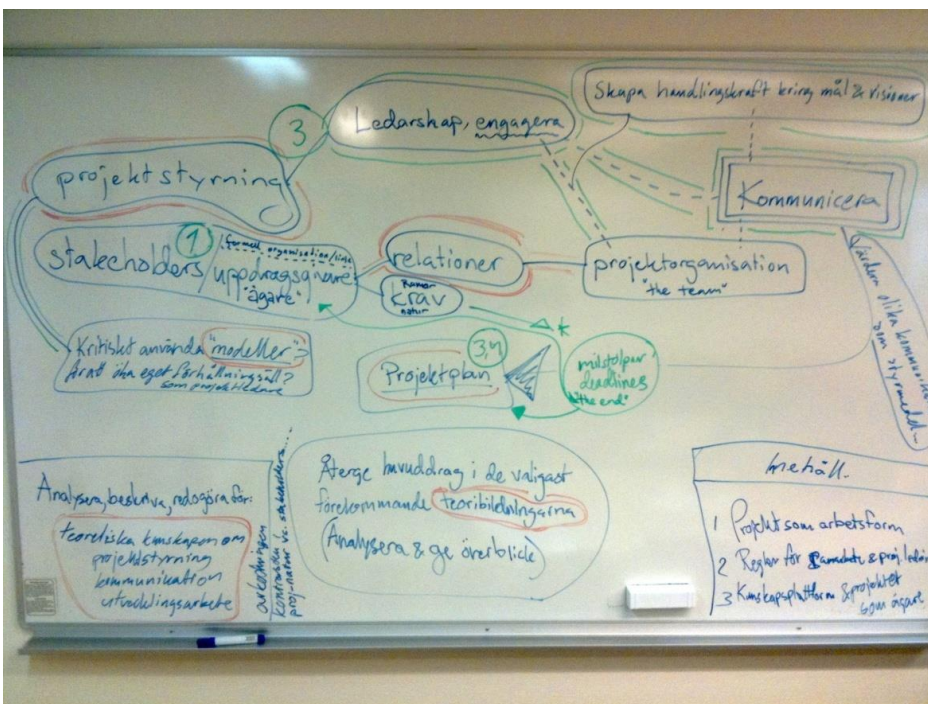 Skapa handlingskraft kring mål & visioner
3
Ledarskap, engagera
projektstyrning
Kommunicera
1
formell organisation/linje
stakeholders/
uppdragsgivare
"ägare"
relationer
projektorganisation
"the team"
Ramar
krav
natur
Värdera olika
som styrmedel
Kritiskt använda "modeller"
för att öka eget förhållningssätt?
som projektledare
3,4
Projektplan
milstolpar
deadlines
"the end"
Analysera, beskriva, redogöra för:
teoretiska kunskapen om
projektstyrning
kommunikation
utvecklingsarbete
kontrasten!
proj-natur vs. stakeholders...
Återge huvuddrag i de valigast
förekommande teoribildningarna
(Analysera & ge överblick)
Innehåll
1 Projekt som arbetsform
2 Regler för & proj.
3 Kunskapsplattform & projektet
som ägare